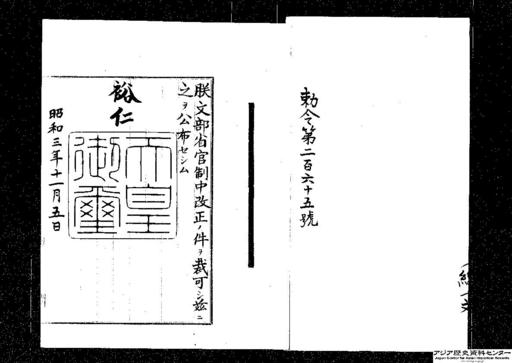 勅令第二百六十五號
朕文部省官制中改正ノ件ヲ裁可シ茲ニ
之ヲ公布セシム
裕仁
天皇
御璽
昭和三年十一月五日
アジア歴史資料センター
Japan Center for Asian Historical Records